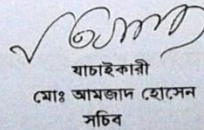 যাচাইকারী
মোঃ আমজাদ হোসেন
সচিব